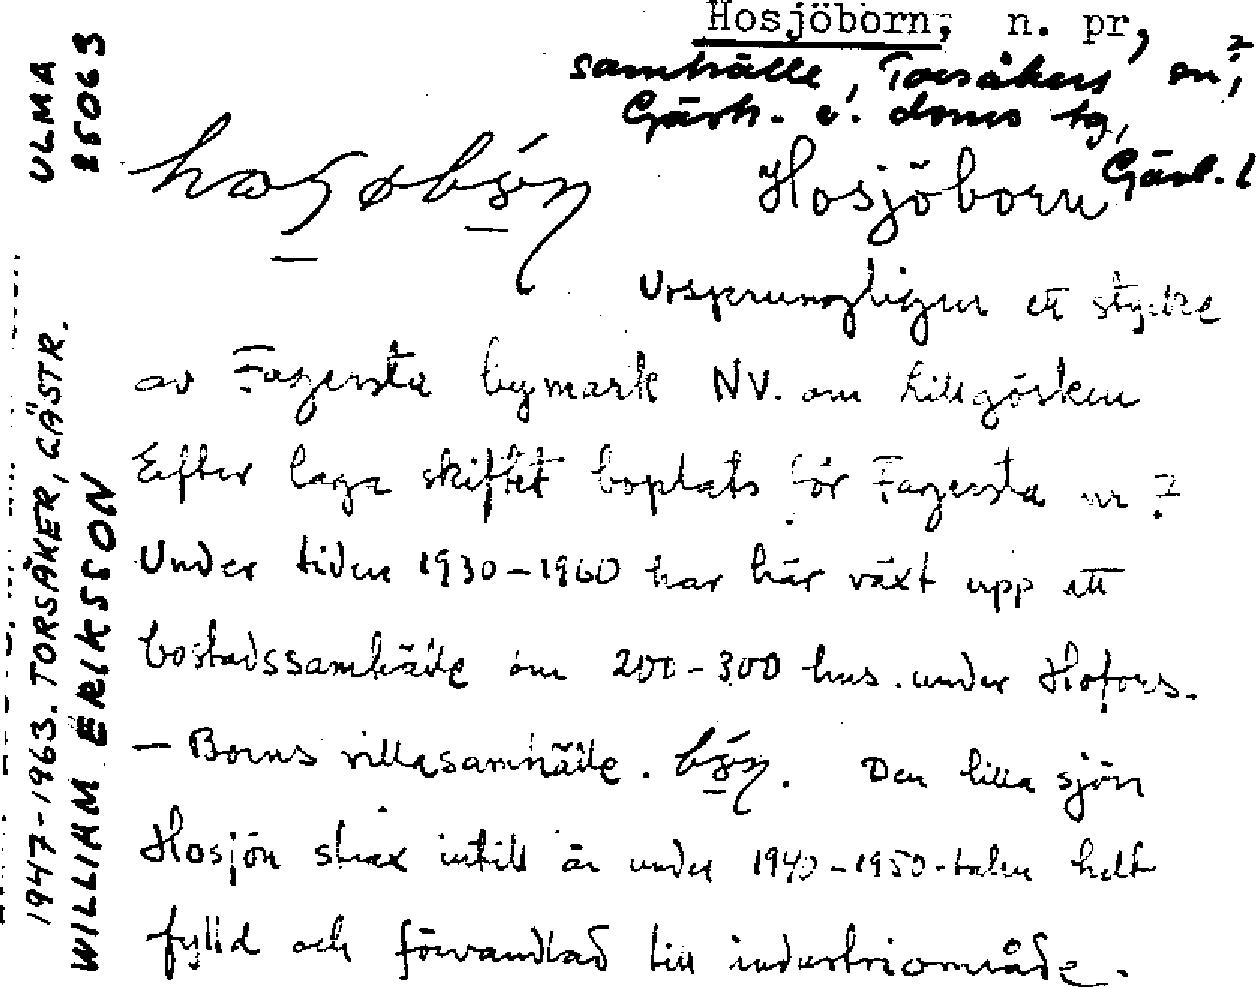 Hosjöborn, n. pr,
samhälle, Torsåkers sn,
Gästr. ö. doms tg,
Gävl. l
Hosjöborn
Ursprungligen ett stycke
av Fagersta bymark NV. om Lillgösken
Efter laga skiftet boplats för Fagersta nr 2
Under tiden 1930-1960 har här växt upp ett
bostadssamhälle om 200-300 hus. under Hofors.
- Borns villasamhälle. Den lilla sjön
Hosjön strax intill är under 1940-1950-talen helt
fylld och förvandlad till industriområde.
ULMA
25063
1947-1963. TORSÅKER, GÄSTR.
WILLIAM ERIKSSON